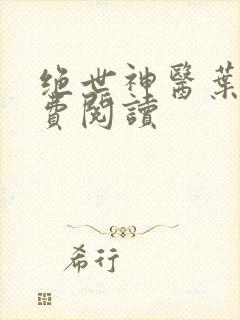 绝世神醫葉
費閱讀
希行